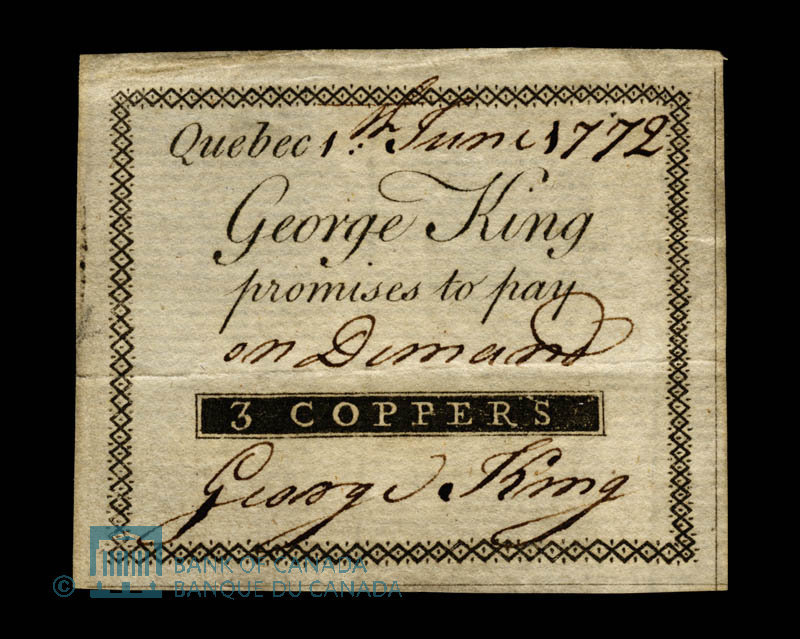 Quebec 1.th June 1772
George King
promises to pay
on Demand
3 COPPERS
George King
© BANK OF CANADA
BANQUE DU CANADA